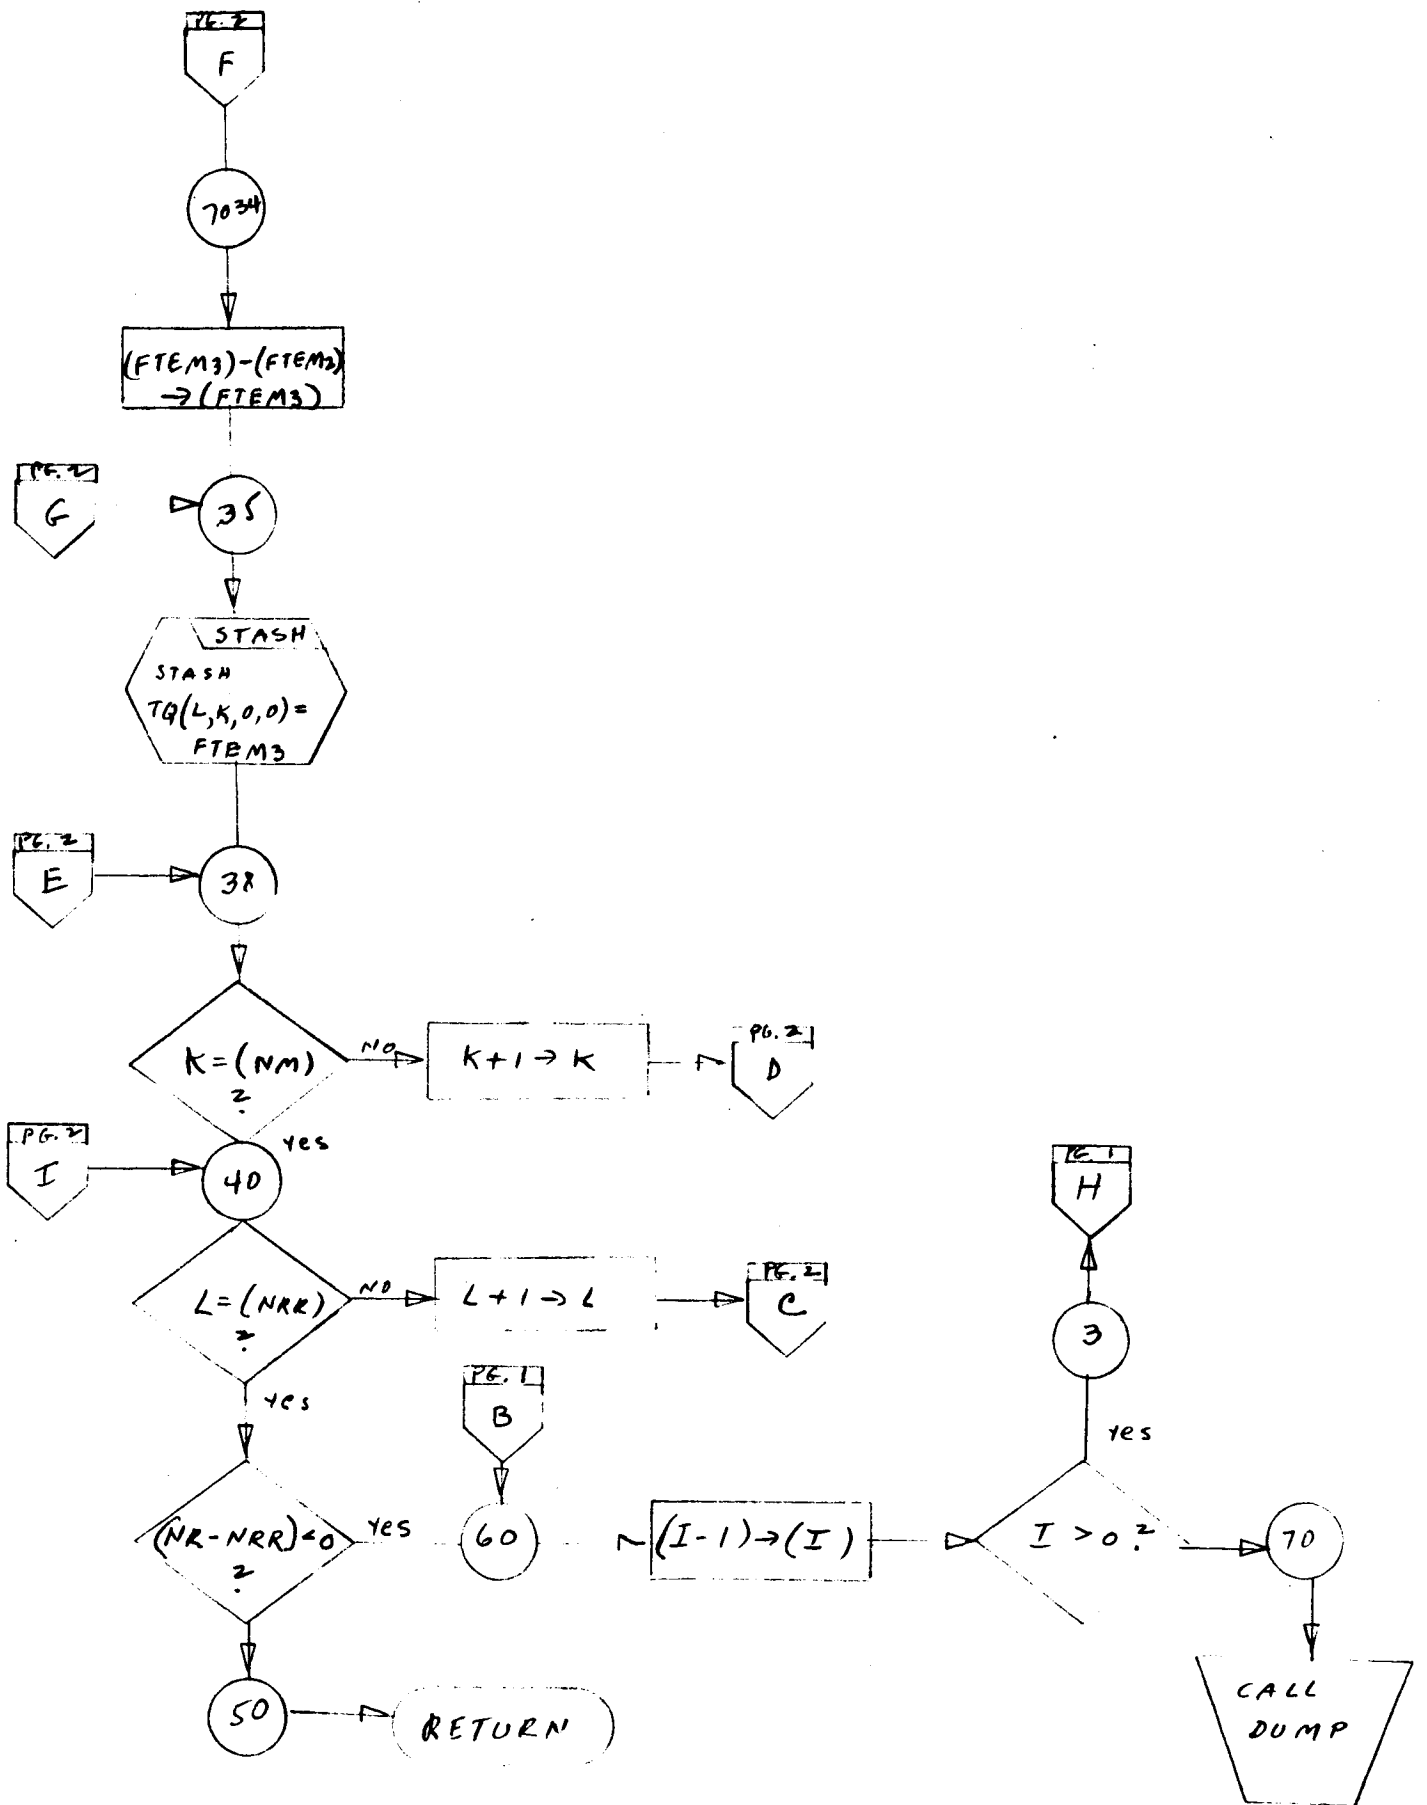 PG. 2
F
7034
(FTEM3)-(FTEM2)
→(FTEM3)
PG. 2
G
35
STASH
STASH
TQ(L,K,0,0)=
FTEM3
PG. 2
E
38
K=(NM)
?
NO
K+1→K
PG. 2
D
yes
PG. 2
I
40
PG. 1
H
L=(NRR)
?
NO
L+1→L
PG. 2
C
3
yes
PG. 1
B
yes
(NR-NRR)<0
?
yes
60
(I-1)→(I)
I>0?
70
50
RETURN
CALL
DUMP